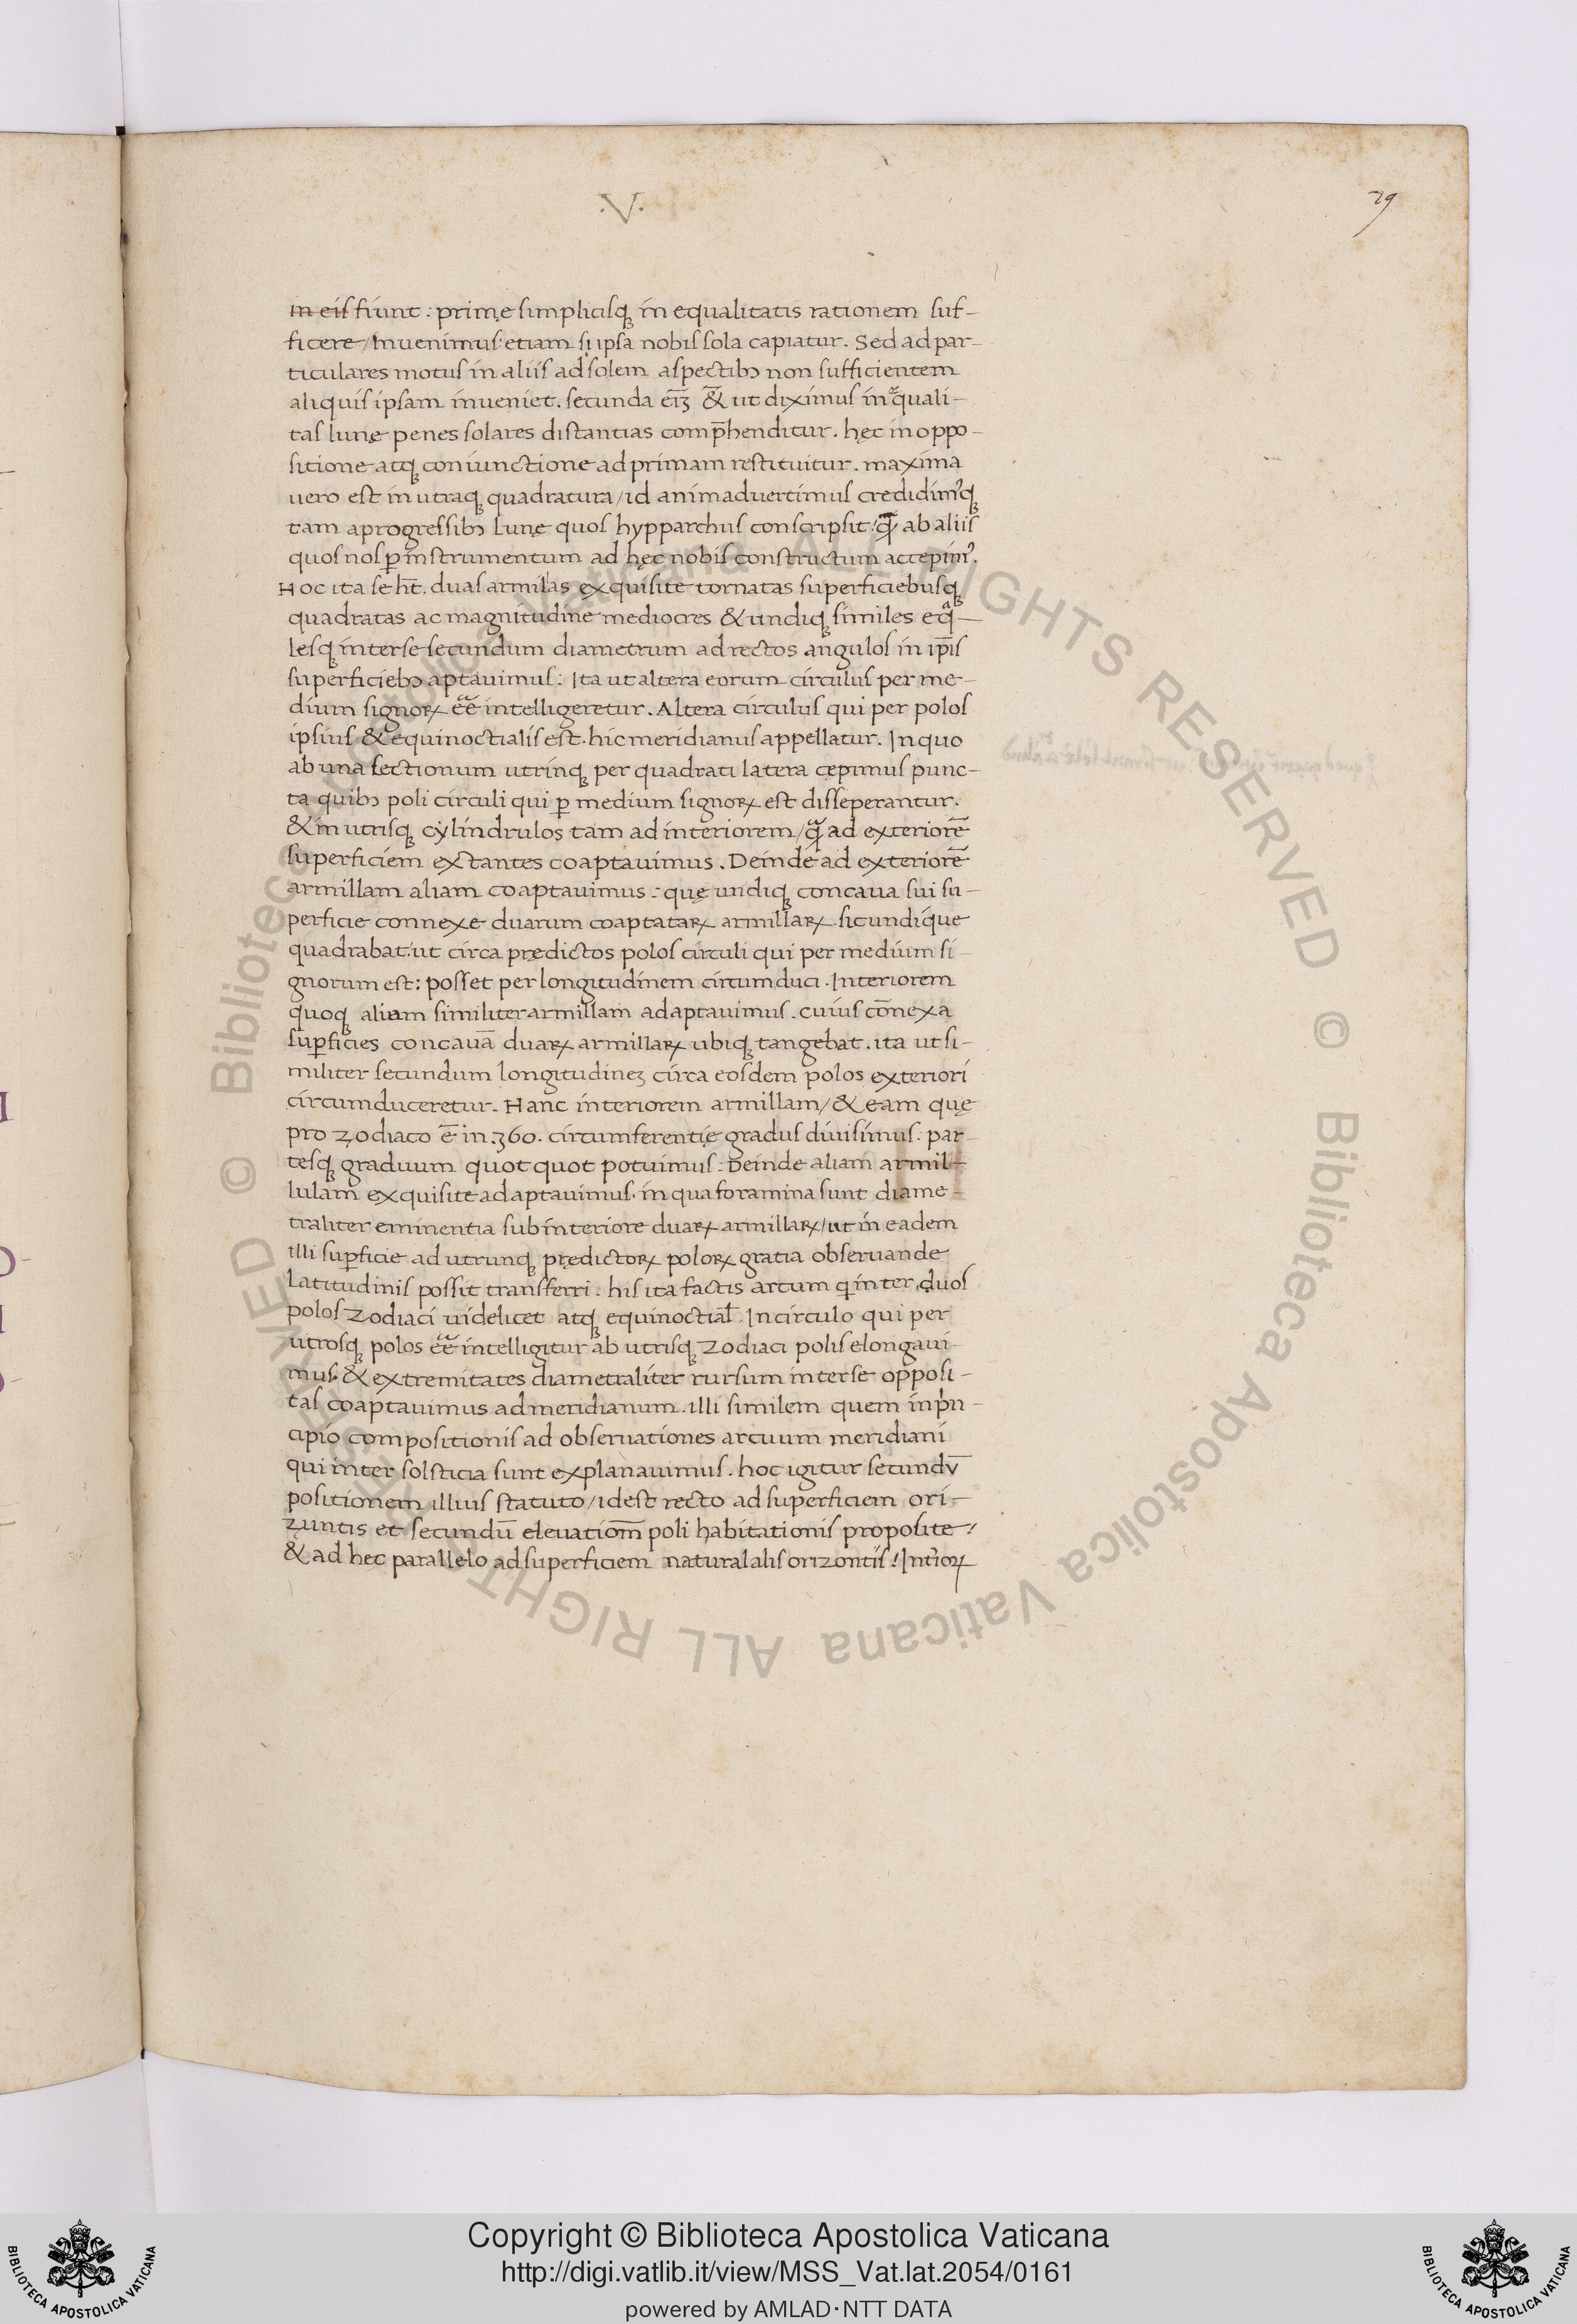 .V.
29
in eis fiunt: primę simplicisq; in equalitatis rationem suf-
ficere / invenimus: etiam si ipsa nobis sola capiatur. Sed ad par-
ticulares motus in aliis ad solem aspectibꝫ non sufficientem
aliquis ipsam inveniet. secunda eīꝫ & ut diximus inequali-
tas lunę penes solares distantias comp̄henditur. hęc in oppo-
sitione atq; coniunctione ad primam restituitur. maxima
uero est in utraq; quadratura / id animaduertimus credidimꝰq;
tam a progressibꝫ Lunę quos hypparchus conscripsit / ꝙ̃ ab aliis
quos nos ꝑ instrumentum ad hęc nobis constructum accepimꝰ.
Hoc ita se ht̄. duas armilas exquisite tornatas superficiebusq;
quadratas ac magnitudine mediocres & undiq; similes eqᷓ-
lesq; inter se secundum diametrum ad rectos angulos in ip̄is
superficiebꝫ aptauimus: Ita ut altera eorum circulus per me-
dium signoꝝ eē intelligeretur. Altera circulus qui per polos
ipsius & equinoctialis est. hic meridianus appellatur. In quo
ab una sectionum utrinq; per quadrati latera cępimus punc-
ta quibꝫ poli circuli qui ꝑ medium signoꝝ est disseperantur.
& in utrisq; cylindrulos tam ad interiorem / ꝙ̃ ad exteriorē
superficiem extantes coaptauimus. Deinde ad exteriorē
armillam aliam coaptauimus: quę undiq; concaua sui su-
perficie connexe duarum coaptataꝝ armillaꝝ. sic undique
quadrabat: ut circa prędictos polos circuli qui per medium si-
gnorum est: posset per longitudinem circumduci. Interiorem
quoq; aliam similiter armillam adaptauimus. cuius cōnexa
suꝑficies concauā duaꝝ armillaꝝ ubiq; tangebat. ita ut si-
militer secundum longitudineꝫ circa eosdem polos exteriori
circumduceretur. Hanc interiorem armillam / & eam quę
pro zodiaco ē in .360. circumferentię gradus diuisimus: par-
tesq; graduum quot quot potuimus: Deinde aliam armil-
lulam exquisite adaptauimus. in qua foramina sunt diame-
traliter eminentia sub interiore duaꝝ armillaꝝ / ut in eadem
illi suꝑficie ad utrunq; prędictoꝝ poloꝝ gratia obseruande
Latitudinis possit transferri. his ita factis arcum q̇ inter duos
polos zodiaci uidelicet atq; equinoctial̄. In circulo qui per
utrosq; polos eē intelligitur ab utrisq; zodiaci polis elongaui-
mus. & extremitates diametraliter rursum inter se opposi-
tas coaptauimus ad meridianum. illi similem quem in prin-
cipio compositionis ad obseruationes arcuum meridiani
qui inter solsticia sunt explanauimus. hoc igitur secundū
positionem illius statuto / idest recto ad superficiem ori-
zuntis et secundū eleuatiom̄ poli habitationis proposite /
& ad hęc parallelo ad superficiem naturalalis orizontis / Int̄ioꝝ
Copyright © Biblioteca Apostolica Vaticana
http://digi.vatlib.it/view/MSS_Vat.lat.2054/0161
powered by AMLAD·NTT DATA